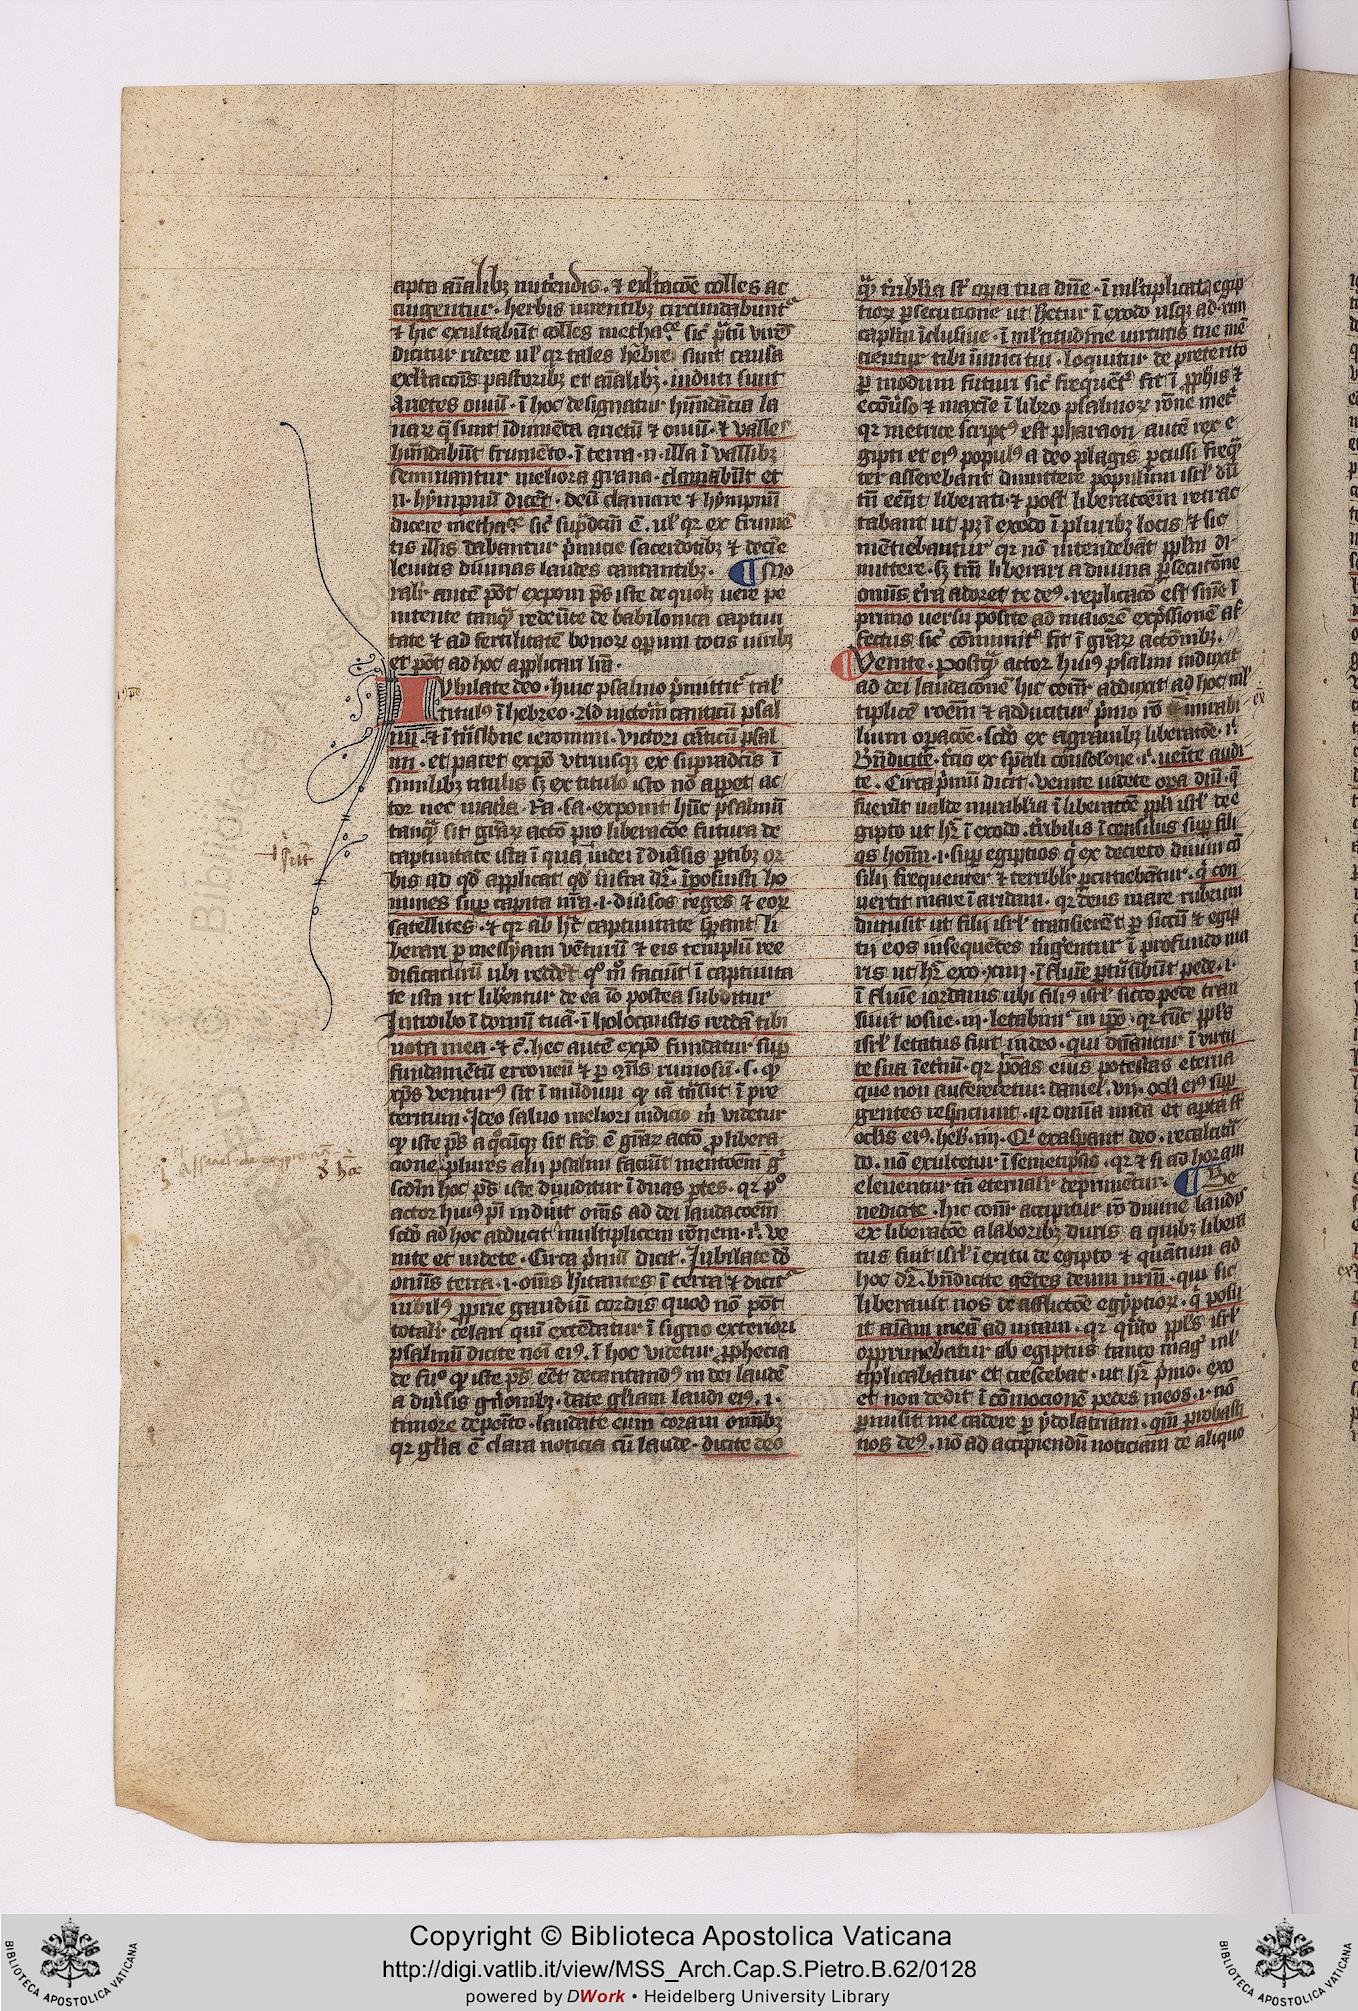 apta aĩalibꝫ nutͥendis · ⁊ exl̾tacõe colles ac
cingentur · herbis uirentibꝫ circundabunt̾
⁊ hic exultabũt colles metha
dicitur ridere ul̾ qꝛ tales herbe sunt causa
exl̾tacõis pastoribꝫ et aĩalibꝫ · induti sunt
Arietes ouiũ · ĩ hoc designatur hũdãtia la
naꝝ q̃ sunt ĩdumẽta arietũ ⁊ ouiũ · ⁊ valles
hũdabũt frumẽto · ĩ terra · n · illa ĩ vallibꝫ
seminantur meliora grana · clamabũt et
n · hẏmpnũ dicẽt · deũ clamare ⁊ hẏmpnũ
dicere sic̃ sup̃dcũ ẽ · ul̾ qꝛ ex frumẽ
tis illis dabantur p̃micie sacerdotibꝫ ⁊ decĩe
leuitis diuinas laudes cantantibꝫ · ¶ Mo
ralr̃ autẽ põt exponi p̃s iste de quolꝫ uere pe
nitente tanq̃ redeũte de babilonica captiui
tate ⁊ ad fertilitatẽ bonoꝝ opeꝝ totis uiribꝫ
et põt ad hoc applicari lr̃a ·
Iubilate deo · huic psalmo p̃mittitͬ tal̾
titulꝰ ĩ hebreo · Ad uictoriam canticũ psal
mi · ⁊ ĩ trãsl̾one ieronimi · victori cãticũ psal
mi · et patet expõ utriusqꝫ ex supradcĩs ĩ
similibꝫ titulis sꝫ ex titulo isto nõ appet ac
tor nec mãia · Ra · sa · exponit hũc psalmũ
tanq̃ sit gr̃aꝝ actõ pro liberacõe futura de
captiuitate ista ĩ qua iudei ĩ diũsis ptibꝫ oꝛ
bis ad qd̾ applicat qd̾ infra dr̃ · ĩposuisti ho
mines sup̃ capita nr̃a · i · diũsos reges ⁊ eoꝝ
satellites · ⁊ qꝛ ab hᷓ captiuitate spant li
berari p messẏam vẽturũ ⁊ eis templũ ree
dificaturũ ubi reddẽt q̊ m̊ faciũt ĩ captiuita
te ista ut libentur de ea iõ postea subditur
Introibo ĩ domũ tuã · ĩ holocaustis reddã tibi
uota mea · ⁊ c̃ · hec autẽ expõ fundatur sup̃
fundamẽtũ erroneũ ⁊ p · ruinosũ · s · ꝙ
xp̃s venturꝰ sit ĩ mũdum ꝙ iã trãsiit ĩ pre
teritum · Ideo saluo meliori iudicio m̃ videtur
ꝙ iste p̃s a q̃cũqꝫ sit fc̃s ẽ gr̃aꝝ actõ p libera
cione plures alij psalmi faciũt mentõem gͦ
scdm̃ hoc p̃s iste diuiditur ĩ duas ptes · qꝛ p̊
actor huiꝰ p̃i inducit oms̃ ad dei laudacõem
scd̾o ad hoc adducit multiplicem rõnem · ĩ · ve
nite et uidete · Circa p̃mũ dicit · Iubilate dõ
omĩs terra · i · oms̃ hĩtantes ĩ terra ⁊ dicitͬ
iubilꝰ pprie gaudiũ cordis quod nõ põt
totalr̃ celari quĩ extẽdatur ĩ signo exteriori
psalmũ dicite noĩ eiꝰ · ĩ hoc videtur pphecia
de fů ꝙ iste p̃s eẽt decantandꝰ in dei laudẽ
a diũsis gẽtõnibꝫ · date gl̃iam laudi eiꝰ · i ·
timore depẽto · laudate eum coram omĩbꝫ
qꝛ gl̃ia ẽ clara noticia cũ laude · dicite deo
q̃ tr̃ibilia st̾ opa tua dñe · ĩ ml̾tiplicatã egip
tioꝝ psecutione ut hr̃etur ĩ exodo usqꝫ ad ·
capl̃m ĩclusiue · ĩ ml̾titudine uirtutis tue mẽ
cientur tibi inimici tui · loquitur de preterito
p modum futuri sic̃ frequẽt̾ fit ĩ pphĩs ⁊
ecõũso ⁊ maxĩe ĩ libro psalmoꝝ rõne met̾
qꝛ metrice scriptꝰ est pharaon autẽ rex e
gipti et eiꝰ populꝰ a deo plagis pcussi freqͣ̃
ter asserebant dimittere populum isrl̾ dũ
tñ eẽnt liberati · ⁊ post liberacõem retrac
tabant ut pꝫ ĩ exodo ĩ pluribꝫ locis ⁊ sic
mẽtiebantur qꝛ nõ intendebãt pplm̃ di
mittere · sꝫ tm̃ liberari a diuina psecutõne
omĩs tr̃a adoret te deꝰ · replicacõ est sniẽ ĩ
primo uersu posite ad maiorẽ exp̃ssionẽ af
fectus sic̃ cõmunit̾ fit ĩ gr̃aꝝ actõnibꝫ ·
¶ Venite · postq̃ actor huiꝰ psalmi induxit
ad dei laudacõnẽ hic cõnr̃ adduxit ad hoc ml̾
tiplicẽ rõem ⁊ adducitur p̃mo rõ ex mirabi
lium opacõe · scd̾o ex agrauibꝫ liberatõe · ĩ ·
Bñdicite · tc̃io ex sp̃ali consolone · ĩ · uenite audi
te · Circa p̃mũ dicit · venite uidete opa dñi · q̃
fuerũt ualde mirablia ĩ liberatõe ppl̃i isrl̾ de e
gipto ut hr̃ ĩ exodo · tr̃ibilis ĩ consilijs sup̃ fili
os hom̃ · i · sup̃ egiptios q̃ ex decreto diuini cõ
silij frequenter ⁊ terribilr̃ pcutiebãtur · q̃ con
uertit mare ĩ aridam · qꝛ deus mare rubeum
diuisit ut filij isrl̾ transierẽt p siccũ ⁊ egip
tij eos insequẽtes mgentur ĩ profundo ma
ris ut hr̃ exo · xiiij · ĩ flumĩe ptr̃ãsibũt pede · i ·
ĩ flumĩe iordanis ubi filiꝰ isrl̾ sicco pede tran
siuit iosue · iij · letabimͬ in ipo · qꝛ tũc ppl̃s
isrl̾ letatus fuit in deo · qui dñatur ĩ uirtu
te sua ĩetnũ · qꝛ potãs eius potestas eterna
que non auferetur · daniel · vij · oclĩ eiꝰ sup̃
gentes respiciunt · qꝛ omĩa nuda et apta st̾
oclĩs eiꝰ · heb · iiij · Qͥ exasperant deo · recalcitrã
do · nõ exultetur ĩ semetipsis · qꝛ ⁊ si ad horam
eleuentur tñ eternalr̃ deprimẽtur · ¶ Be
nedicite · hic cõnr̃ accipitur rõ diuine laudis
ex liberatõe a laboribꝫ duris a quibꝫ libera
tus fuit isrl̾ ĩ exitu de egipto ⁊ quãtum ad
hoc dr̃ · bñdicite gẽtes deum nr̃m · qui sic
liberauit nos de afflictõe egẏptioꝝ · q̃ posu
it aĩam meã ad uitam · qꝛ q̃nto ppl̃s isrl̾
opprimebatur ab egiptijs tanto magͥ ml̾
tiplicabatur et crescebat · ut hr̃ p̃mo · exo
et non dedit ĩ cõmocionẽ pedes meos · i · nõ
pmisit me cadere p ẏdolatriam · qm̃ probasti
nos deꝰ · nõ ad accipiendũ noticiam de aliquo
Copyright © Biblioteca Apostolica Vaticana
http://digi.vatlib.it/view/MSS_Arch.Cap.S.Pietro.B.62/0128
powered by DWork • Heidelberg University Library
BIBLIOTECA APOSTOLICA VATICANA
BIBLIOTECA APOSTOLICA VATICANA